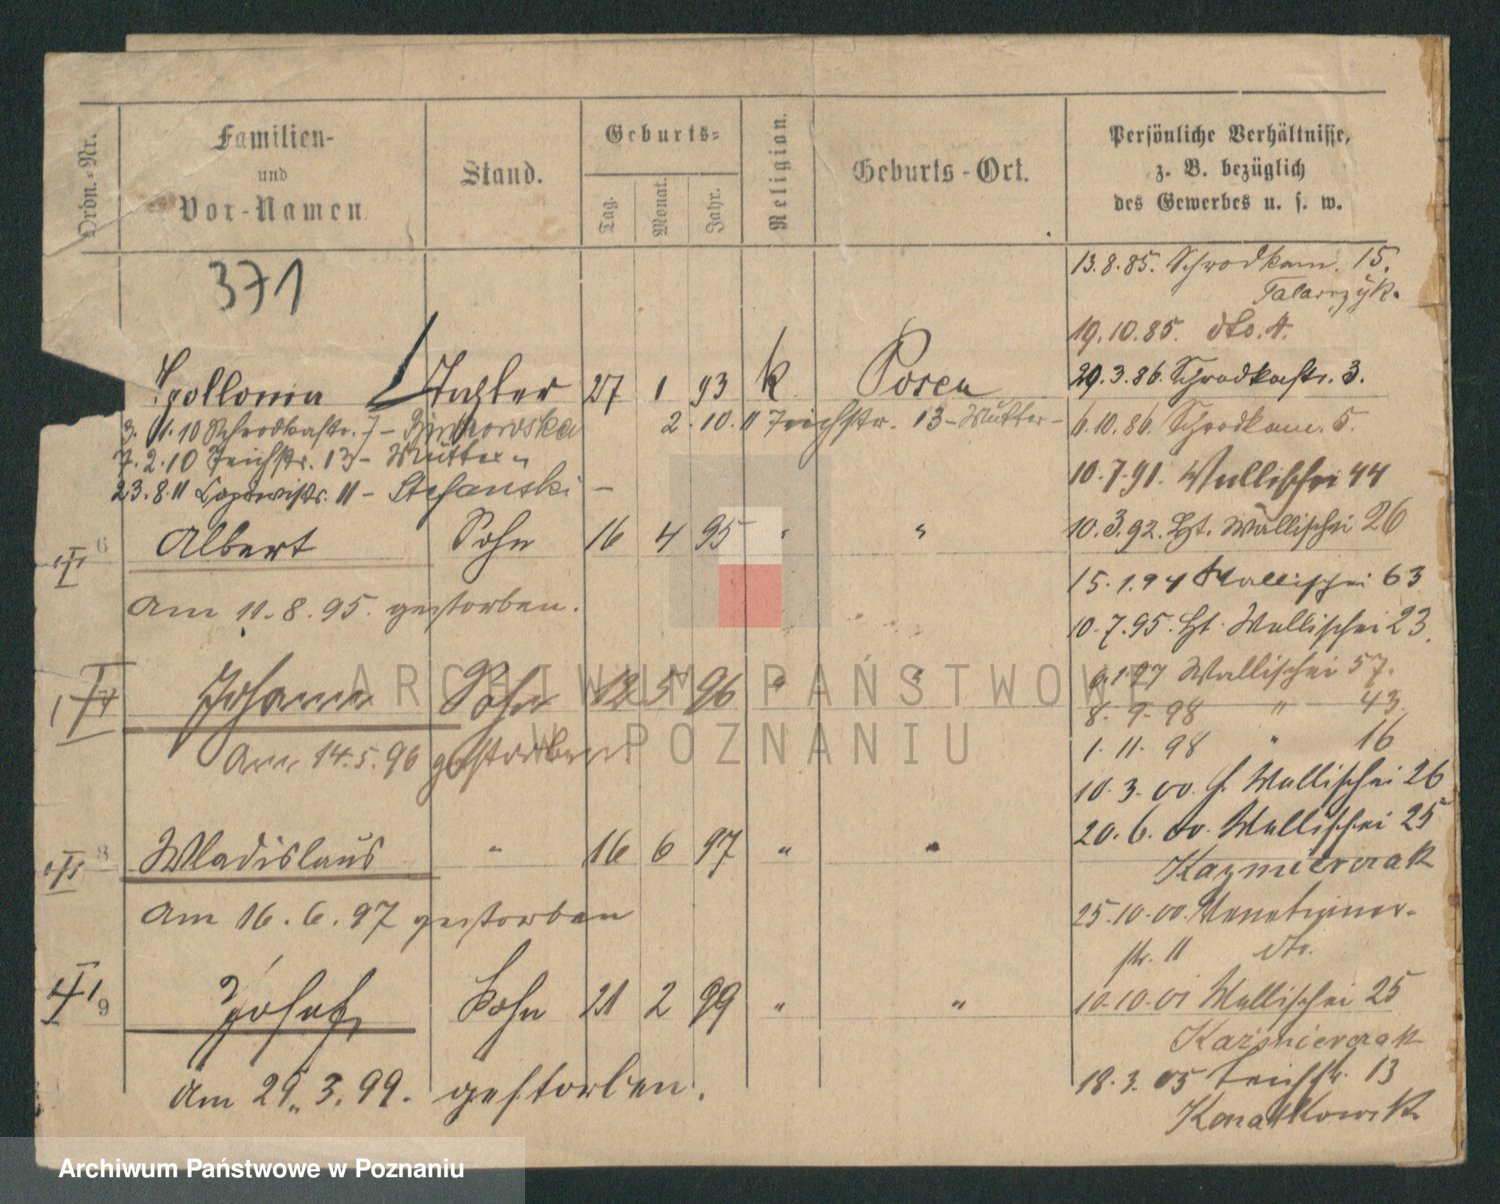 Ordn.-Nr.
Familien-
und
Vor-Namen
Stand.
Geburts-
Tag.
Monat.
Jahr.
Religion.
Geburts-Ort.
Persönliche Verhältnisse,
z. B. bezüglich
des Gewerbes u. s. w.
371
13.8.85. Schrodkam. 15.
Talarczyk.
19.10.85. dto. 4.
Apollonia Tochter 27 1 93 k Posen
29.3.86. Schrodkastr. 3.
3. 1.10 Schrodkastr. 7-
2.10.11 Teichstr. 13 - Mutter -
6.10.86. Schrodkam. 5.
7.2.10 Teichstr. 13 - Mutter
23.8.11 11 - Stefanski -
10.7.91. Wallischei 44
6 Albert Sohn 16 4 95 " "
10.3.92. Ht. Wallischei 26
15.1.94 Wallischei 63
Am 11.8.95. gestorben.
10.7.95. Ht. Wallischei 23.
Johann Sohn 12 5 96 " "
9.1.97 Wallischei 57.
8.9.98 " 43.
Am 14.5.96 gestorben
1.11.98 " 16
10.3.00. H. Wallischei 26
20.6.00. Wallischei 25
8 Wladislaus " 16 6 97 " "
Kazmierczak
Am 16.6.97 gestorben
25.10.00. Venetianer-
str. 11 dto.
9 Josef Sohn 21 2 99 " "
10.10.01 Wallischei 25
Kazmierczak
Am 29. 3. 99. gestorben.
18.3.05 Teichstr. 13
ARCHIWUM PAŃSTWOWE
W POZNANIU
Archiwum Państwowe w Poznaniu